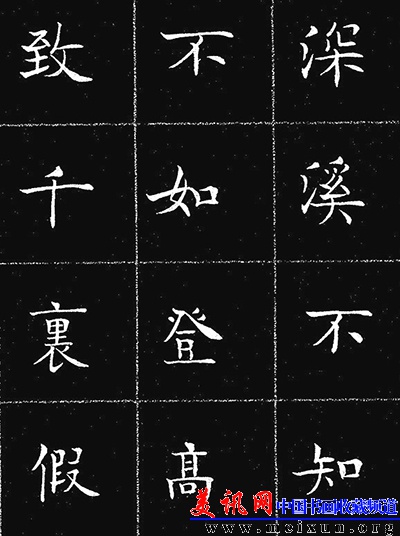 深溪不知
不如登高
致千裏假
美讯网 中国书画收藏频道
www.meixun.org